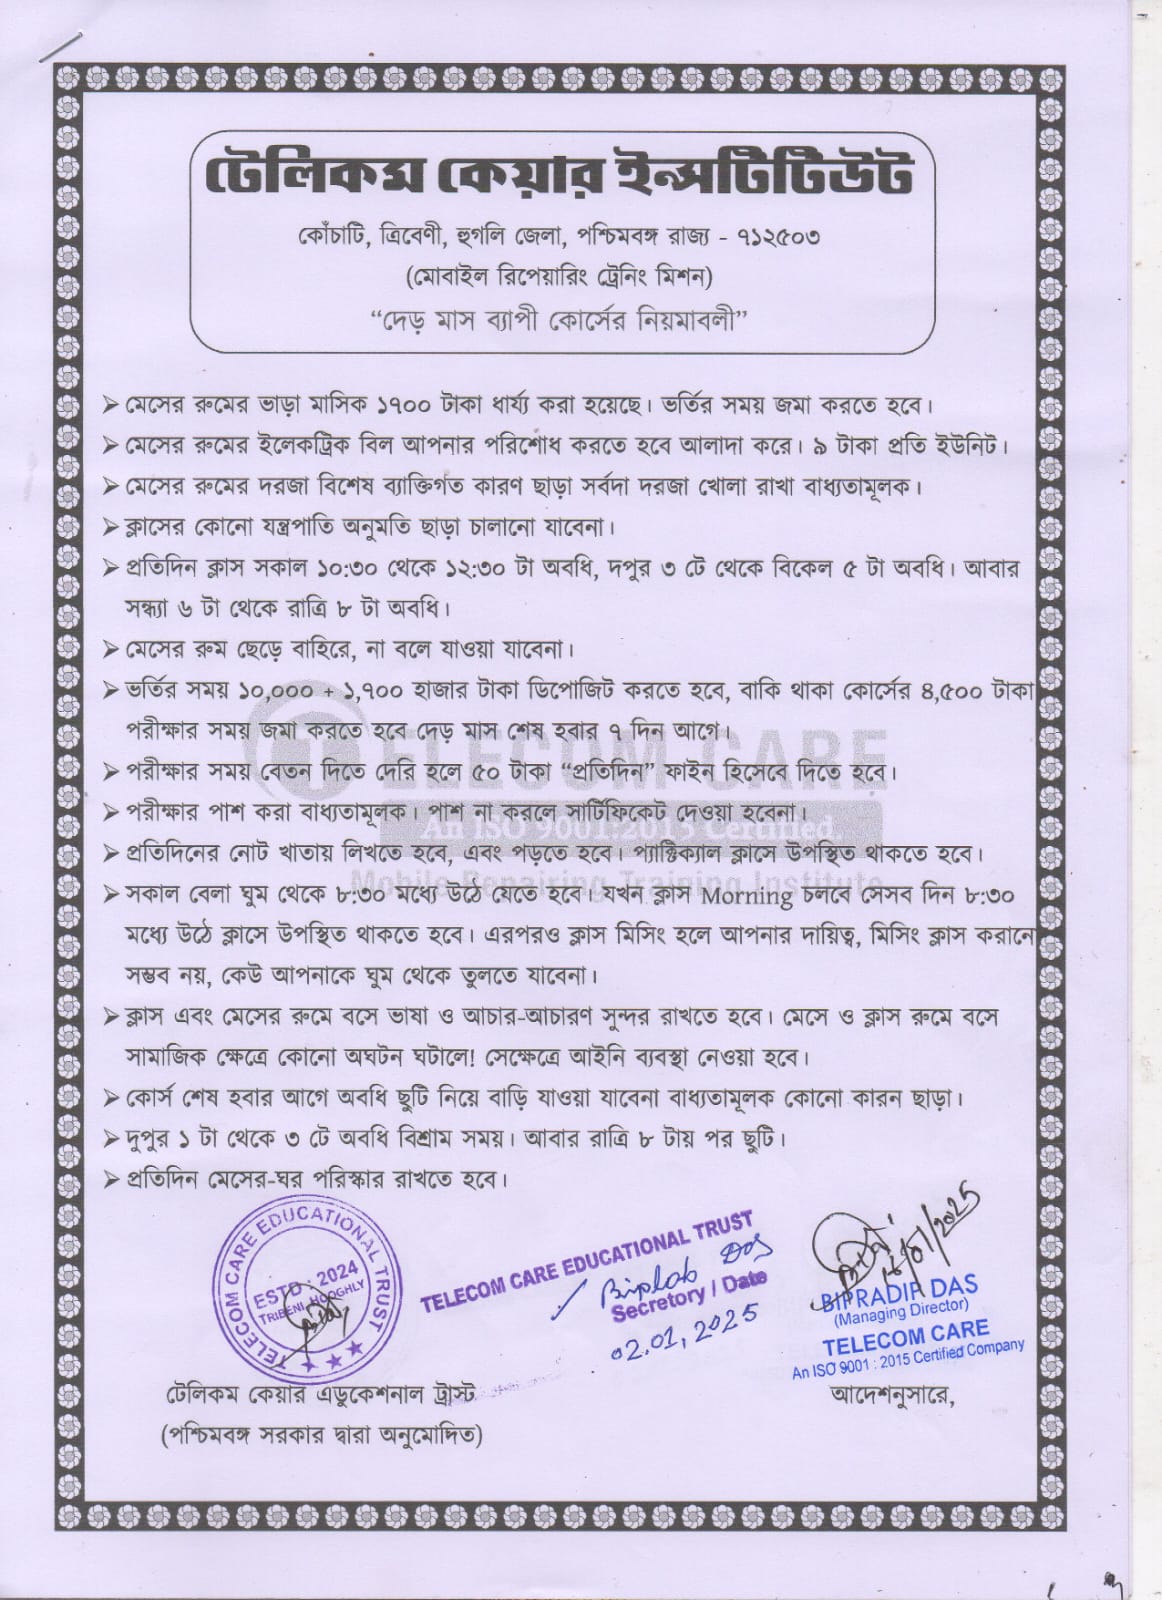 টেলিকম কেয়ার ইন্সটিটিউট
কোঁচাটি, ত্রিবেণী, হুগলি জেলা, পশ্চিমবঙ্গ রাজ্য - ৭১২৫০৩
(মোবাইল রিপেয়ারিং ট্রেনিং মিশন)
“দেড় মাস ব্যাপী কোর্সের নিয়মাবলী”
➢ মেসের রুমের ভাড়া মাসিক ১৭০০ টাকা ধার্য্য করা হয়েছে। ভর্তির সময় জমা করতে হবে।
➢ মেসের রুমের ইলেকট্রিক বিল আপনার পরিশোধ করতে হবে আলাদা করে। ৯ টাকা প্রতি ইউনিট।
➢ মেসের রুমের দরজা বিশেষ ব্যাক্তিগত কারণ ছাড়া সর্বদা দরজা খোলা রাখা বাধ্যতামূলক।
➢ ক্লাসের কোনো যন্ত্রপাতি অনুমতি ছাড়া চালানো যাবেনা।
➢ প্রতিদিন ক্লাস সকাল ১০:৩০ থেকে ১২:৩০ টা অবধি, দপুর ৩ টে থেকে বিকেল ৫ টা অবধি। আবার
সন্ধ্যা ৬ টা থেকে রাত্রি ৮ টা অবধি।
➢ মেসের রুম ছেড়ে বাহিরে, না বলে যাওয়া যাবেনা।
➢ ভর্তির সময় ১০,০০০ + ১,৭০০ হাজার টাকা ডিপোজিট করতে হবে, বাকি থাকা কোর্সের ৪,৫০০ টাকা
পরীক্ষার সময় জমা করতে হবে দেড় মাস শেষ হবার ৭ দিন আগে।
➢ পরীক্ষার সময় বেতন দিতে দেরি হলে ৫০ টাকা “প্রতিদিন” ফাইন হিসেবে দিতে হবে।
➢ পরীক্ষার পাশ করা বাধ্যতামূলক। পাশ না করলে সার্টিফিকেট দেওয়া হবেনা।
➢ প্রতিদিনের নোট খাতায় লিখতে হবে, এবং পড়তে হবে। প্যাক্টিক্যাল ক্লাসে উপস্থিত থাকতে হবে।
➢ সকাল বেলা ঘুম থেকে ৮:৩০ মধ্যে উঠে যেতে হবে। যখন ক্লাস Morning চলবে সেসব দিন ৮:৩০
মধ্যে উঠে ক্লাসে উপস্থিত থাকতে হবে। এরপরও ক্লাস মিসিং হলে আপনার দায়িত্ব, মিসিং ক্লাস করানো
সম্ভব নয়, কেউ আপনাকে ঘুম থেকে তুলতে যাবেনা।
➢ ক্লাস এবং মেসের রুমে বসে ভাষা ও আচার-আচারণ সুন্দর রাখতে হবে। মেসে ও ক্লাস রুমে বসে
সামাজিক ক্ষেত্রে কোনো অঘটন ঘটালে! সেক্ষেত্রে আইনি ব্যবস্থা নেওয়া হবে।
➢ কোর্স শেষ হবার আগে অবধি ছুটি নিয়ে বাড়ি যাওয়া যাবেনা বাধ্যতামূলক কোনো কারন ছাড়া।
➢ দুপুর ১ টা থেকে ৩ টে অবধি বিশ্রাম সময়। আবার রাত্রি ৮ টায় পর ছুটি।
➢ প্রতিদিন মেসের-ঘর পরিস্কার রাখতে হবে।
TELECOM CARE
An ISO 9001:2015 Certified
Mobile Repairing Training Institute
TELECOM CARE EDUCATIONAL TRUST
ESTD - 2024
TRIBENI, HOOGHLY
TELECOM CARE EDUCATIONAL TRUST
Biplab Das
Secretory / Date
02.01,2025
16/01/2025
BIPRADIP DAS
(Managing Director)
TELECOM CARE
An ISO 9001 : 2015 Certified Company
টেলিকম কেয়ার এডুকেশনাল ট্রাস্ট
(পশ্চিমবঙ্গ সরকার দ্বারা অনুমোদিত)
আদেশনুসারে,